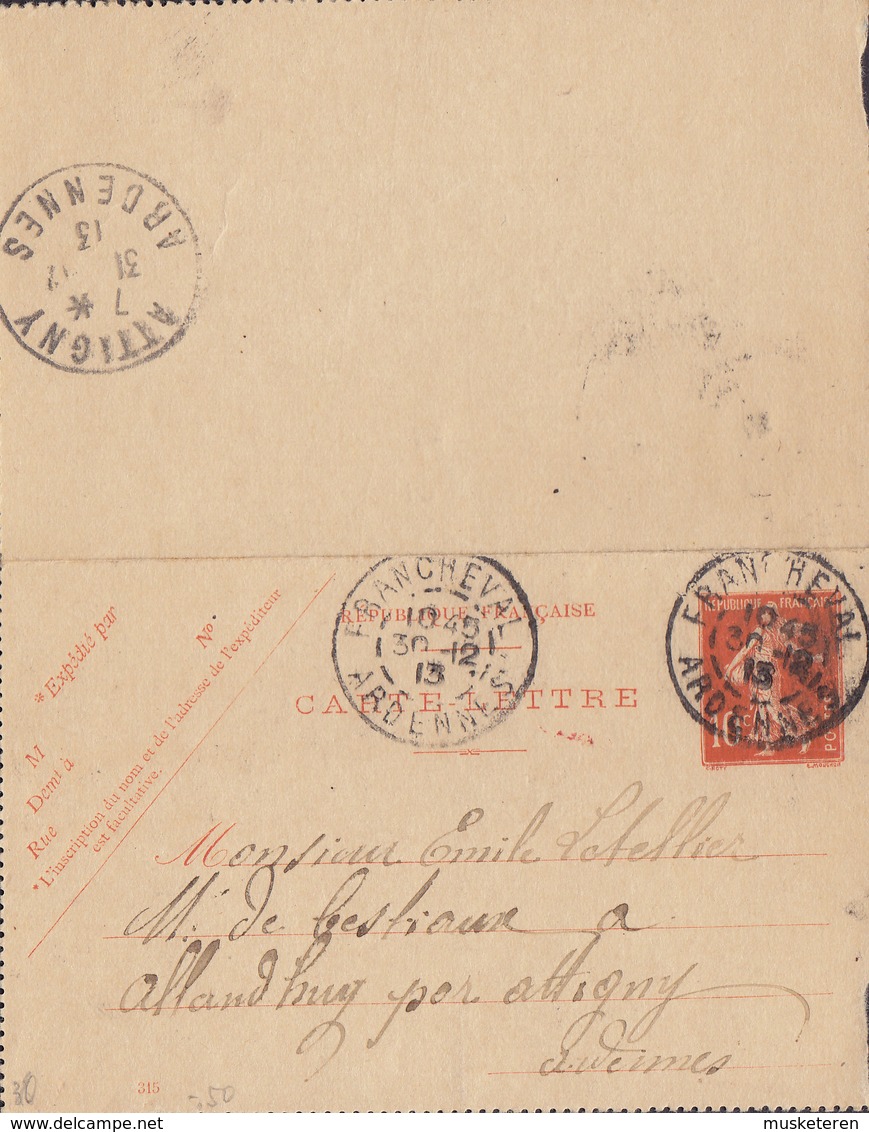 ATTIGNY
7 *
31 12
13
ARDENNES
FRANCHEVAL
10 45
30 -12
13
ARDENNES
FRANCHEVAL
10 45
30 -12
13
ARDENNES
RÉPUBLIQUE FRANÇAISE
CARTE-LETTRE
REPUBLIQUE FRANÇAISE
10 c
POSTES
O. ROTY
L. MOUCHON
* Expédié par
No
M
Demt à
Rue
*L'inscription du nom et de l'adresse de l'expéditeur
est facultative.
Monsieur Emile Letellier
M. de bestiaux a
Allandhuy par attigny
Ardennes
30
315
-.50
musketeren